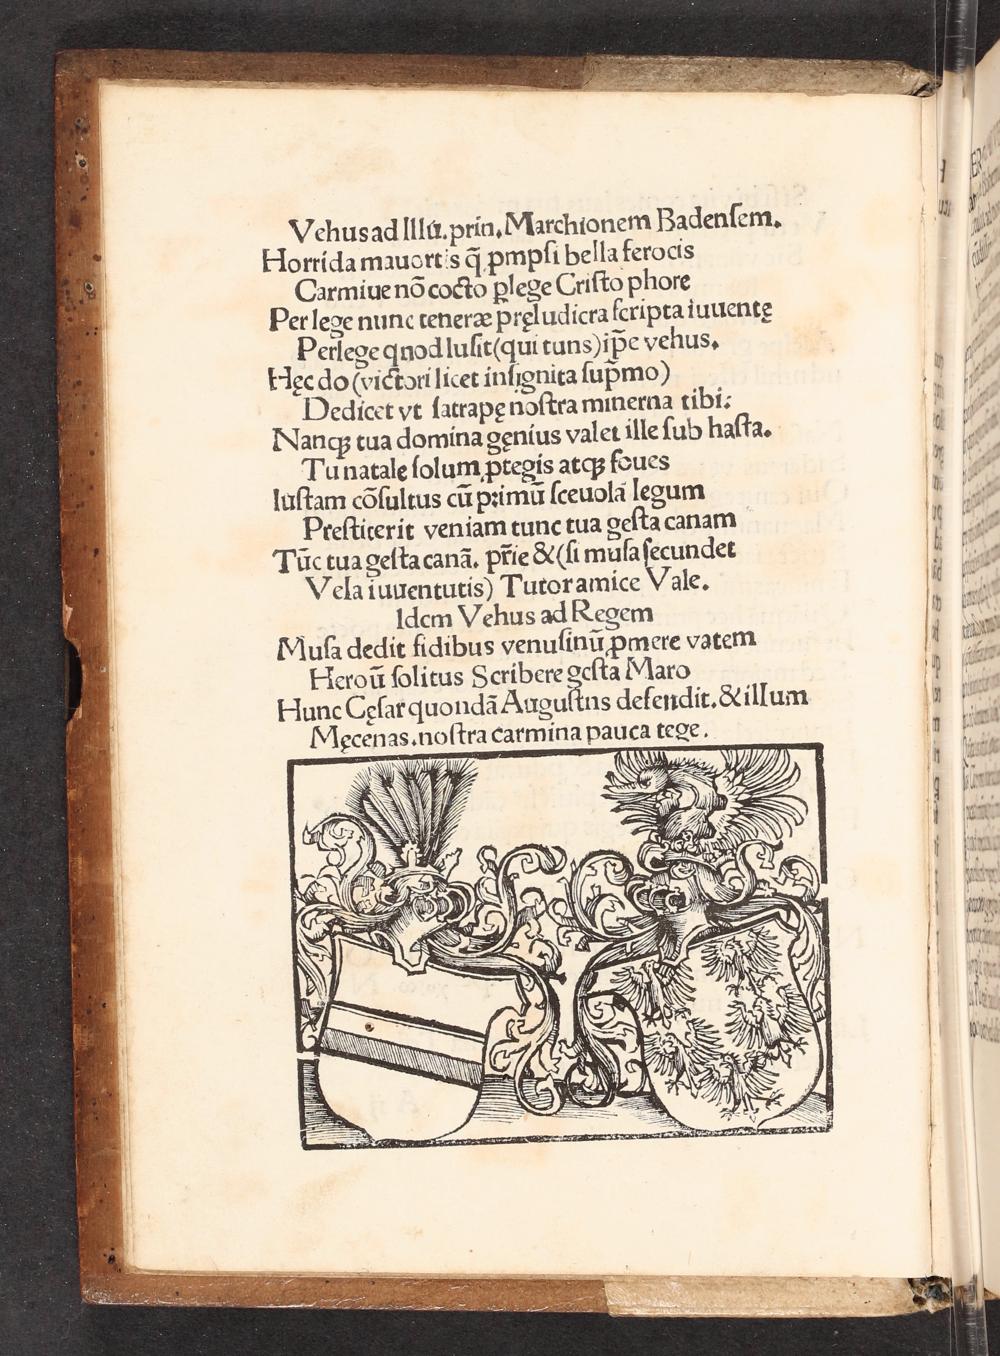 Vehus ad Illū. prin. Marchionem Badensem.
Horrida mauortis q̃ ꝓmpsi bella ferocis
Carmiue nō cocto ꝑlege Cristo phore
Per lege nunc teneræ pręludicra scripta iuuentę
Perlege qnod lusit (qui tuns) ip̄e vehus.
Hęc do (victori licet insignita sup̄mo)
Dedicet vt satrapę nostra minerna tibi:
Nanqꝫ tua domina gęnius valet ille sub hasta.
Tu natalę solum ꝓtegis atqꝫ foues
Iustam cōsultus cū primū sceuolā legum
Prestiterit veniam tunc tua gesta canam
Tūc tua gesta canā. pr̄ie & (si musa secundet
Vela iuuentutis) Tutor amice Vale.
Idem Vehus ad Regem
Musa dedit fidibus venusinū ꝓmere vatem
Heroū solitus Scribere gesta Maro
Hunc Cęsar quondā Augustns defendit. & illum
Męcenas. nostra carmina pauca tege.